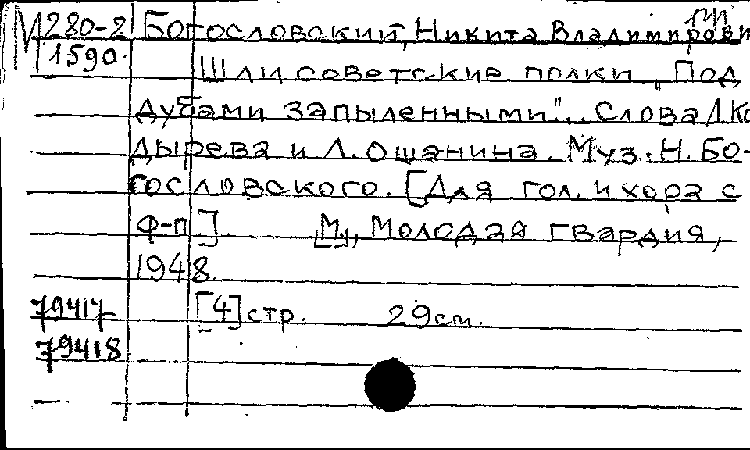 М 280-2 Богословский, Никита Владимирович
1590. Шли советские полки „Под
дубами запыленными". Слова Л. Ко-
дырева и Л. Ошанина. Муз. Н. Бо-
гословского. [Для гол. и хора с
ф-п.]. [М], Молодая гвардия,
1948.
79417 [4] стр. 29 см.
79418